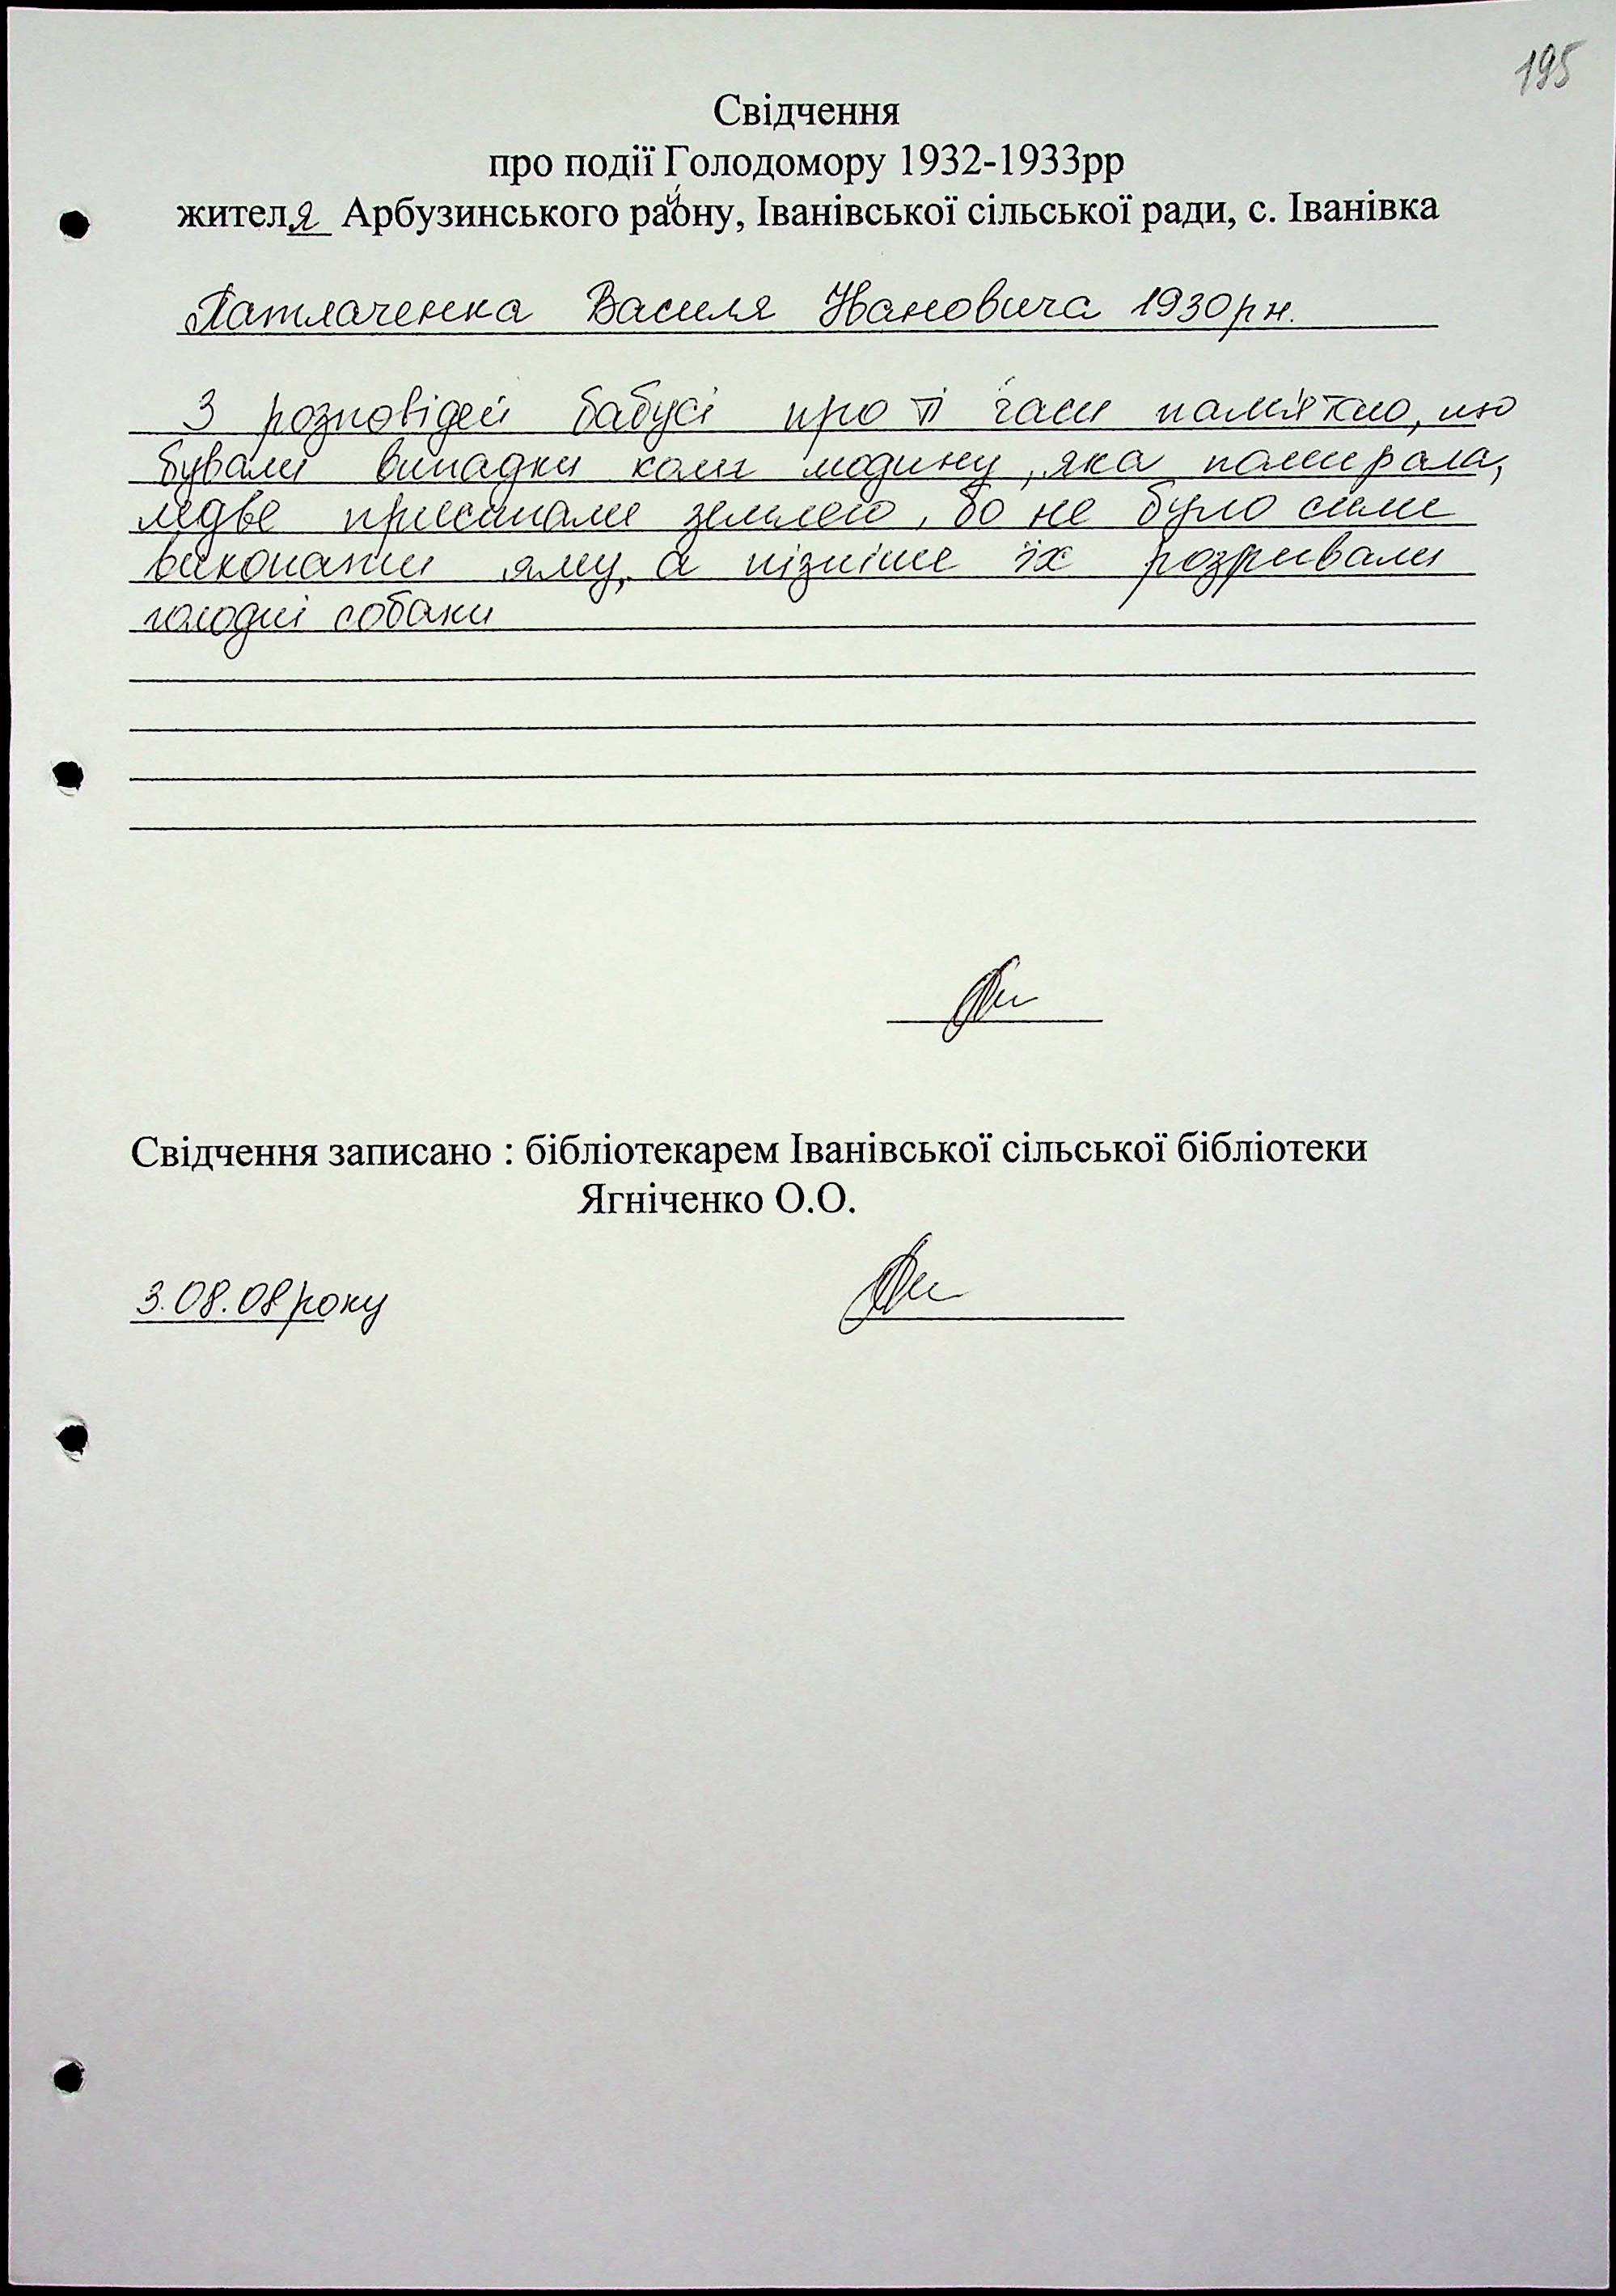 195
Свідчення
про події Голодомору 1932-1933рр
жителя Арбузинського району, Іванівської сільської ради, с. Іванівка
Патлаченка Василя Івановича 1930рн.
З розповідей бабусі про ті часи пам'ятаю, що
бували випадки коли людину, яка помирала,
ледве присипали землею, бо не було сили
викопати яму, а пізніше їх розривали
голодні собаки
Свідчення записано : бібліотекарем Іванівської сільської бібліотеки
Ягніченко О.О.
3.08.08року